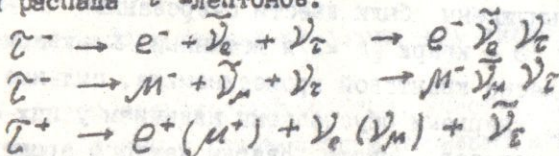 распада лептонов.
τ⁻ → e⁻ + ν̃ₑ + ν_τ → e⁻ ν̃ₑ ν_τ
τ⁻ → μ⁻ + ν̃_μ + ν_τ → μ⁻ ν̃_μ ν_τ
τ⁺ → e⁺(μ⁺) + νₑ(ν_μ) + ν̃_τ